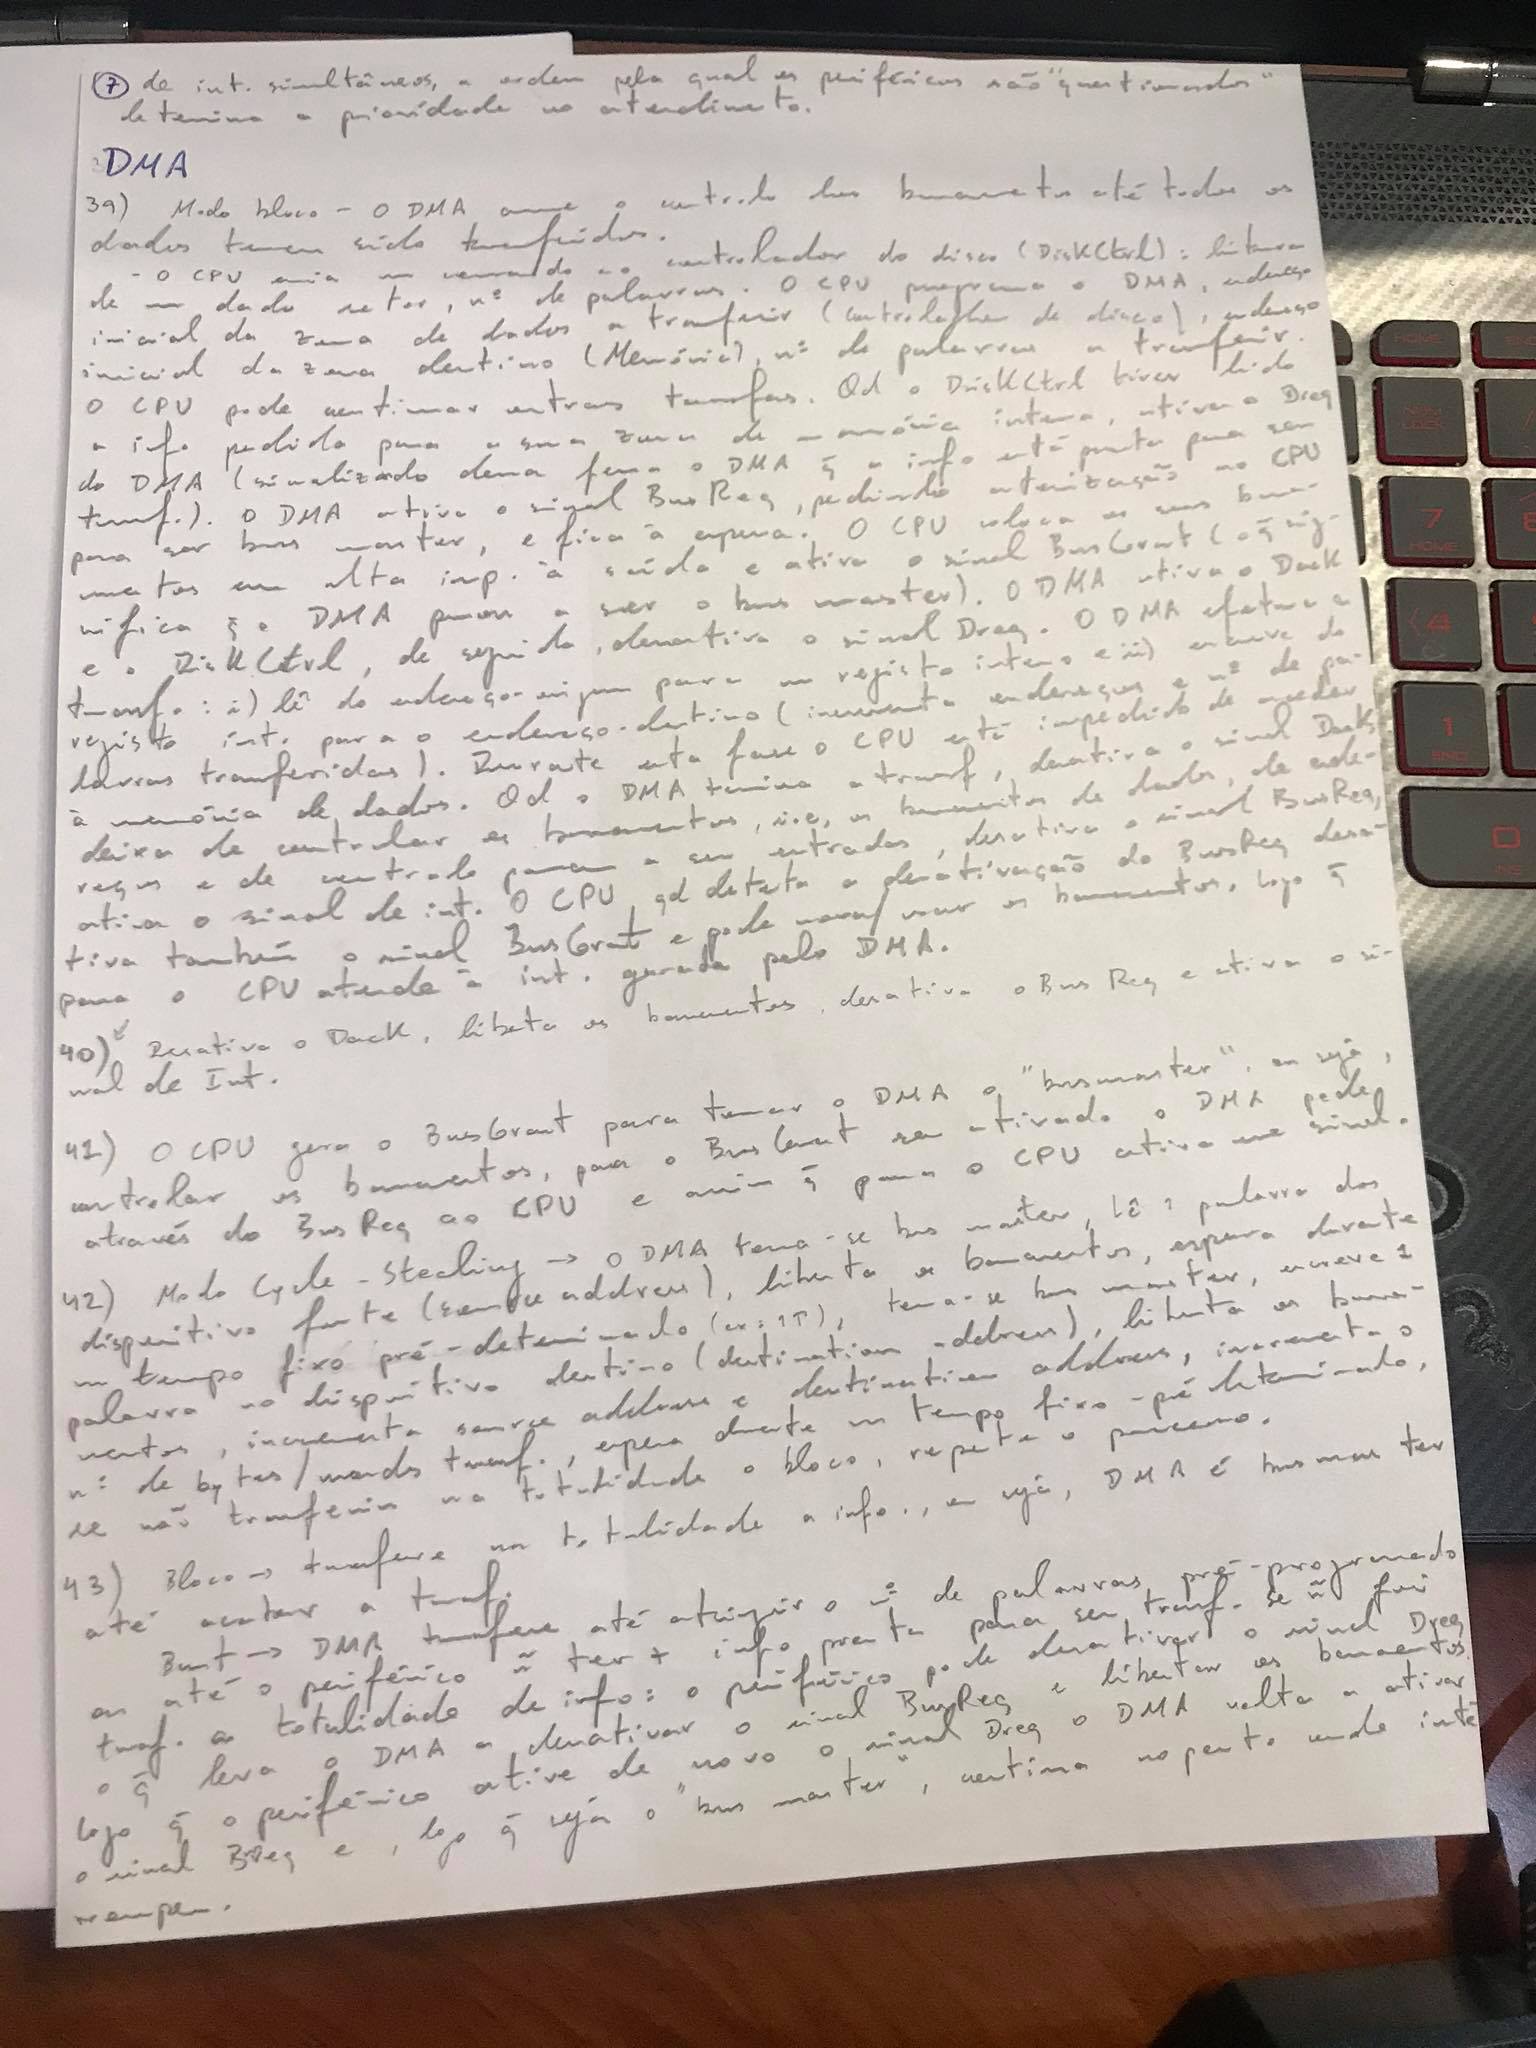 7 de int. simultâneos, a ordem pela qual os periféricos são "questionados"
determina a prioridade no atendimento.
DMA
39) Modo bloco - O DMA assume o controlo dos barramentos até todos os
dados terem sido transferidos.
- O CPU envia um comando ao controlador do disco (DiskCtrl): leitura
de um dado setor, nº de palavras. O CPU programa o DMA, endereço
inicial da zona de dados a transferir (controlador de disco), endereço
inicial da zona destino (Memória), nº de palavras a transferir.
O CPU pode continuar outras tarefas. Qd o DiskCtrl tiver lido
a info pedida para a sua zona de memória interna, ativa o Dreq
do DMA (sinalizando dessa forma o DMA q̃ a info está pronta para ser
transf.). O DMA ativa o sinal BusReq, pedindo autorização ao CPU
para ser bus master, e fica à espera. O CPU coloca os seus barra-
mentos em alta imp. à saída e ativa o sinal BusGrant (o q̃ sig-
nifica q̃ o DMA passou a ser o bus master). O DMA ativa o Dack
e o DiskCtrl, de seguida, desativa o sinal Dreq. O DMA efetua a
transf.: i) lê do endereço-origem para um registo interno e ii) escreve do
registo int. para o endereço-destino (incrementa endereços e nº de pa-
lavras transferidas). Durante esta fase o CPU está impedido de aceder
à memória de dados. Qd o DMA termina a transf, desativa o sinal Dack,
deixa de controlar os barramentos, i.e, os barramentos de dados, de ende-
reços e de controlo passam a ser entradas, desativa o sinal BusReq,
ativa o sinal de int. O CPU, qd deteta a desativação do BusReq desa-
tiva também o sinal BusGrant e pode nova/ usar os barramentos. Logo q̃
possa o CPU atende à int. gerada pelo DMA.
40) Desativa o Dack, liberta os barramentos, desativa o BusReq e ativa o si-
nal de Int.
41) O CPU gera o BusGrant para tornar o DMA o "busmaster", ou seja,
controlar os barramentos, para o BusGrant ser ativado o DMA pede
através do BusReq ao CPU e assim q̃ possa o CPU ativa esse sinal.
42) Modo Cycle-Stealing → O DMA torna-se bus master, lê 1 palavra dos
dispositivo fonte (source address), liberta os barramentos, espera durante
um tempo fixo pré-determinado (ex: 1T), torna-se bus master, escreve 1
palavra no dispositivo destino (destination address), liberta os barra-
mentos, incrementa source address e destination address, incrementa o
nº de bytes/words transf., espera durante um tempo fixo-pré determinado,
se não transferiu na totalidade o bloco, repete o processo.
43) Bloco → transfere na totalidade a info., ou seja, DMA é bus master
até acabar a transf.
Burst → DMA transfere até atingir o nº de palavras pré-programado
ou até o periférico ñ ter + info pronta para ser transf. se ñ foi
transf. a totalidade de info: o periférico pode desativar o sinal Dreq
o q̃ leva o DMA a desativar o sinal BusReq e libertar os barramentos.
Logo q̃ o periférico ative de novo o sinal Dreq o DMA volta a ativar
o sinal BReq e, logo q̃ seja o "bus master", continua no ponto onde inte
rrompeu.